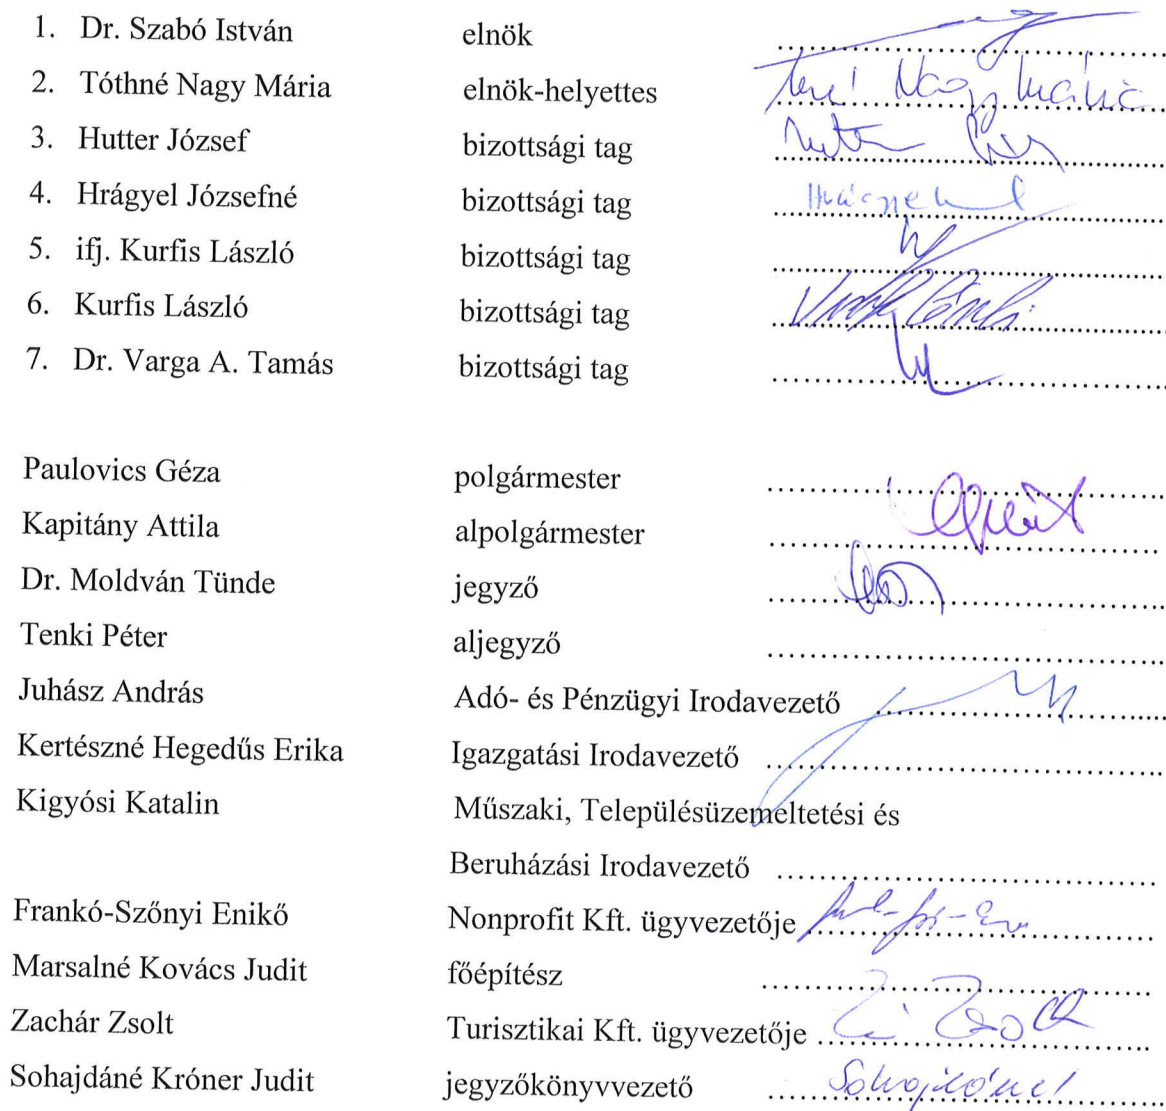 1. Dr. Szabó István elnök ........................................
2. Tóthné Nagy Mária elnök-helyettes Tné Nagy Mária
3. Hutter József bizottsági tag ........................................
4. Hrágyel Józsefné bizottsági tag ........................................
5. ifj. Kurfis László bizottsági tag ........................................
6. Kurfis László bizottsági tag ........................................
7. Dr. Varga A. Tamás bizottsági tag ........................................
Paulovics Géza polgármester ........................................
Kapitány Attila alpolgármester ........................................
Dr. Moldván Tünde jegyző ........................................
Tenki Péter aljegyző ........................................
Juhász András Adó- és Pénzügyi Irodavezető ........................................
Kertészné Hegedűs Erika Igazgatási Irodavezető ........................................
Kigyósi Katalin Műszaki, Településüzemeltetési és
Beruházási Irodavezető ........................................
Frankó-Szőnyi Enikő Nonprofit Kft. ügyvezetője ........................................
Marsalné Kovács Judit főépítész ........................................
Zachár Zsolt Turisztikai Kft. ügyvezetője ........................................
Sohajdáné Króner Judit jegyzőkönyvvezető Sohajdáné